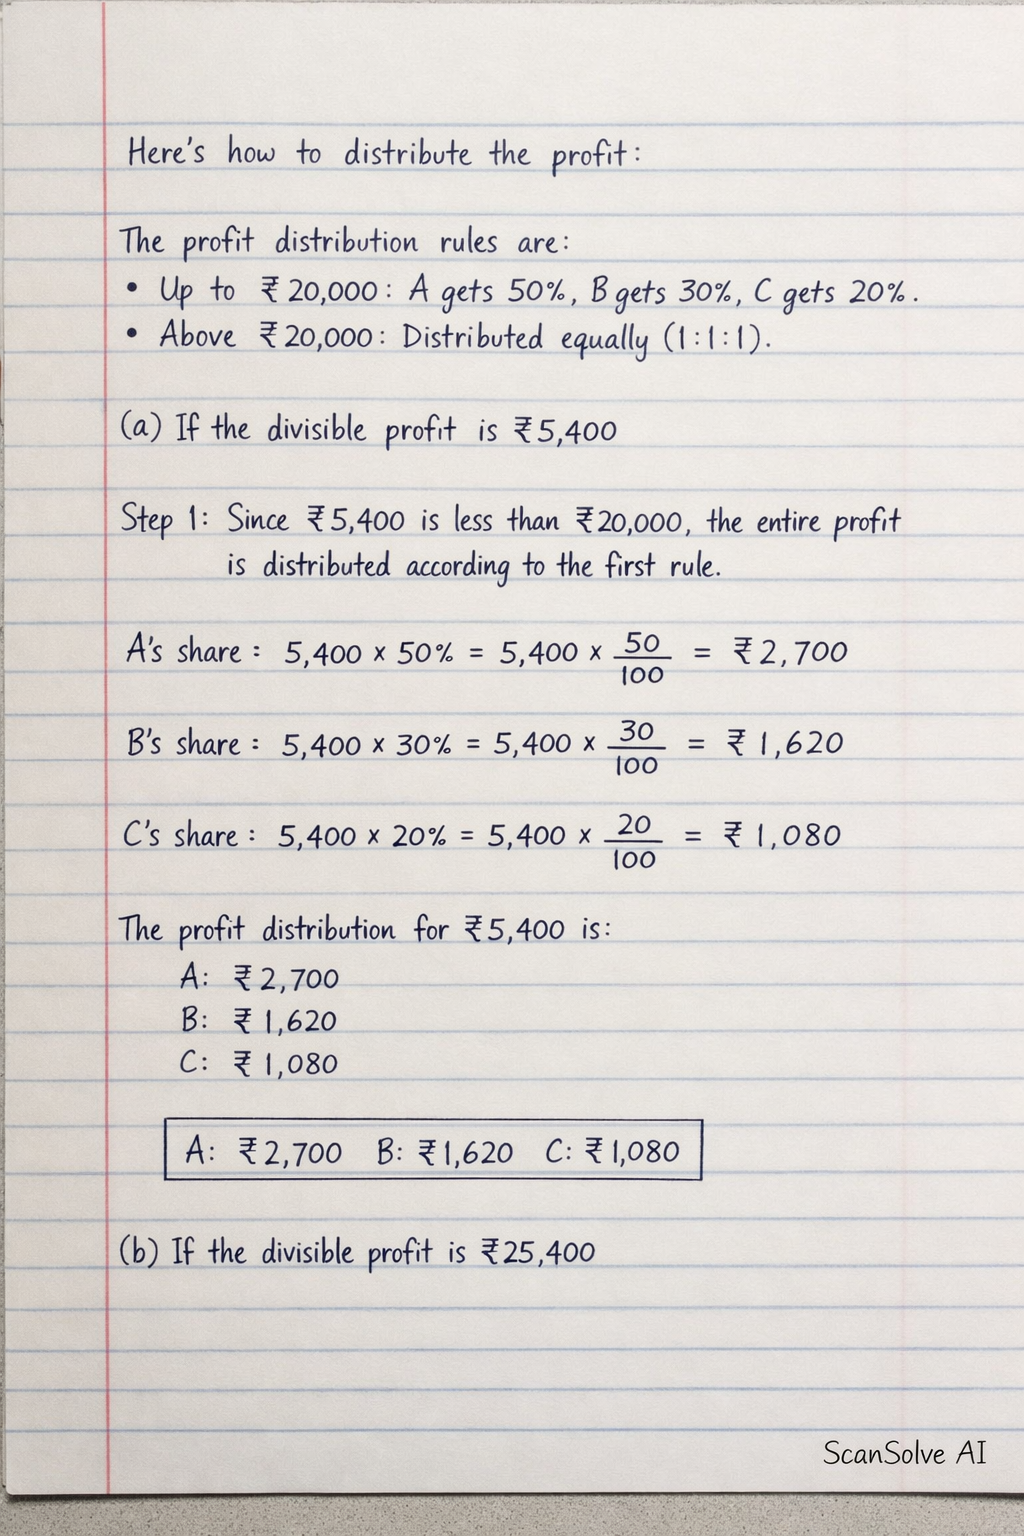 Here's how to distribute the profit:
The profit distribution rules are:
• Up to ₹20,000: A gets 50%, B gets 30%, C gets 20%.
• Above ₹20,000: Distributed equally (1:1:1).
(a) If the divisible profit is ₹5,400
Step 1: Since ₹5,400 is less than ₹20,000, the entire profit
is distributed according to the first rule.
A's share: 5,400 × 50% = 5,400 × 50/100 = ₹2,700
B's share: 5,400 × 30% = 5,400 × 30/100 = ₹1,620
C's share: 5,400 × 20% = 5,400 × 20/100 = ₹1,080
The profit distribution for ₹5,400 is:
A: ₹2,700
B: ₹1,620
C: ₹1,080
A: ₹2,700 B: ₹1,620 C: ₹1,080
(b) If the divisible profit is ₹25,400
ScanSolve AI